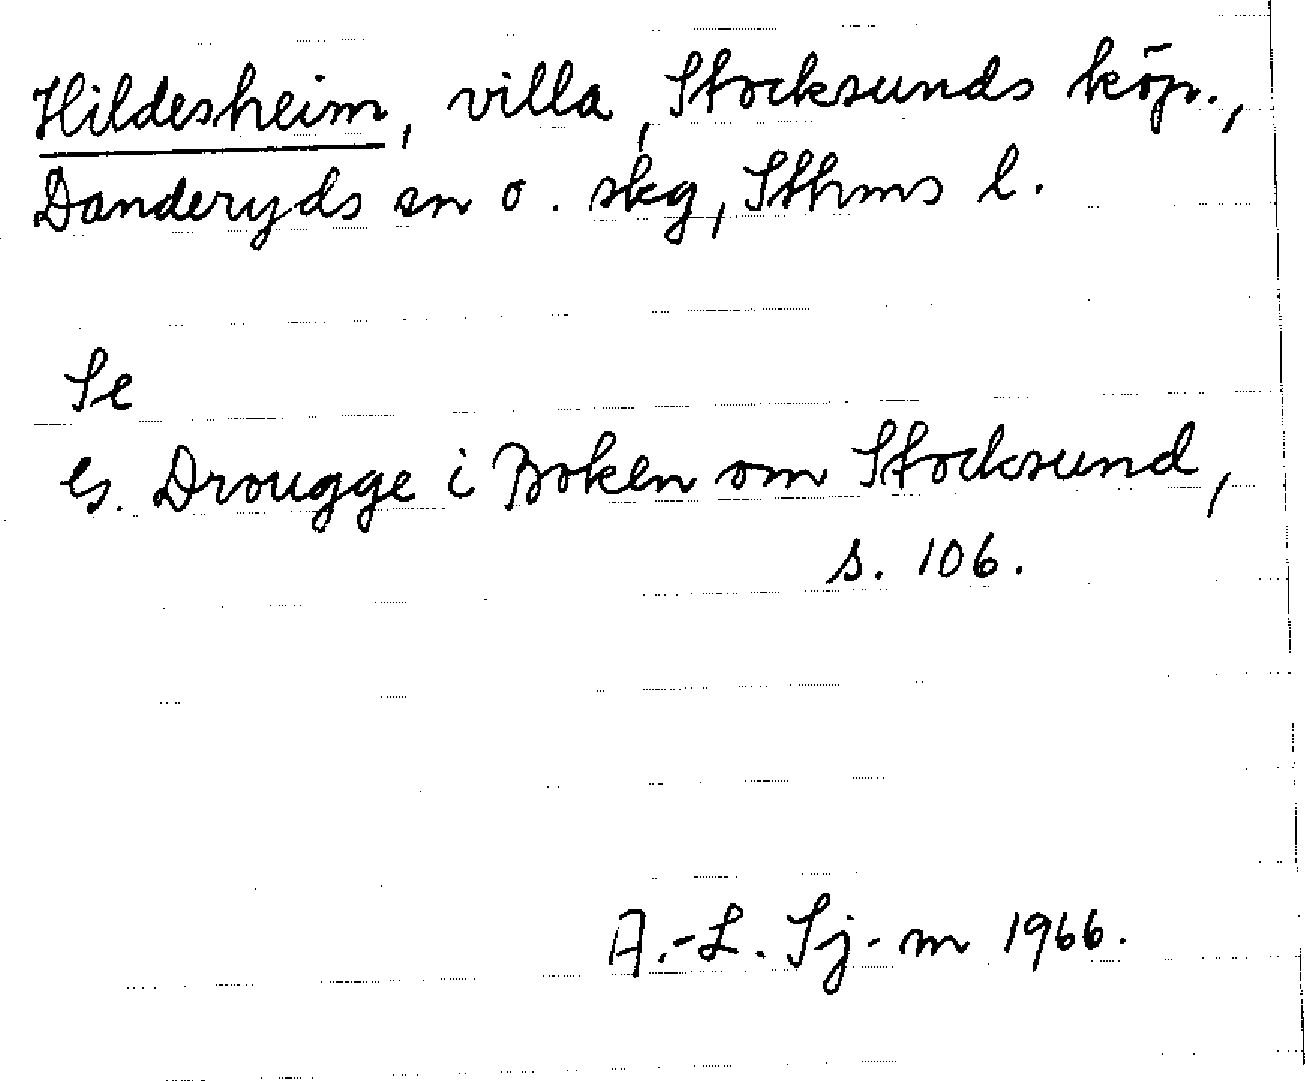 Hildesheim, villa, Stocksunds köp.,
Danderyds sn o. skg, Sthms l.
Se
G. Drougge i Boken om Stocksund,
s. 106.
A.-L. Sj-m 1966.